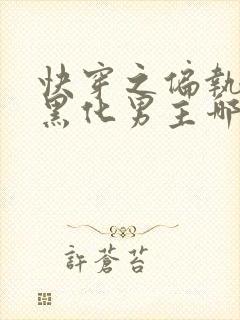 快穿之偏執
黑化男主那
許蒼苔